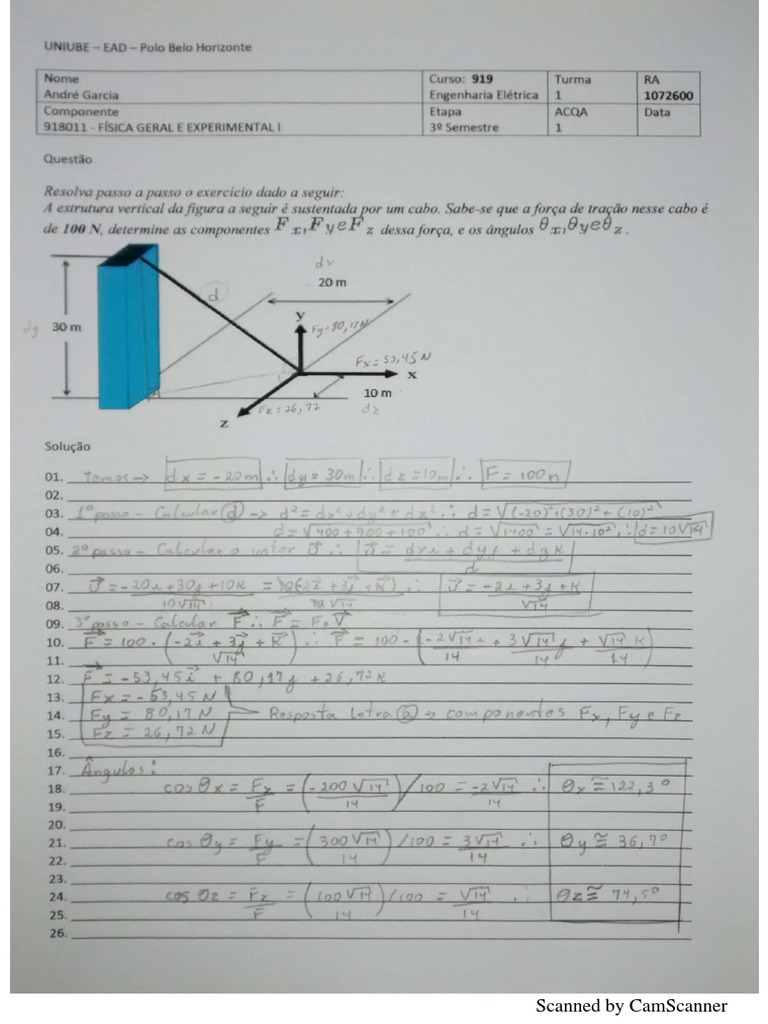 UNIUBE – EAD – Polo Belo Horizonte
Nome
André Garcia
Curso: 919
Engenharia Elétrica
Turma
1
RA
1072600
Componente
918011 - FÍSICA GERAL E EXPERIMENTAL I
Etapa
3º Semestre
ACQA
1
Data
Questão
Resolva passo a passo o exercício dado a seguir:
A estrutura vertical da figura a seguir é sustentada por um cabo. Sabe-se que a força de tração nesse cabo é
de 100 N, determine as componentes F x, F y e F z dessa força, e os ângulos θx, θy e θz .
dx
20 m
d
dy 30 m
y
Fy=80,17N
Fx = 53,45 N
x
10 m
dz
Fz=26,72
z
Solução
01. Temos → dx = -20m ∴ dy = 30m ∴ dz = 10m ∴ F = 100n
02.
03. 1º passo - Calcular d → d² = dx² + dy² + dz² ∴ d = √(-20)²+(30)²+(10)²
04. d = √400+900+100 ∴ d = √1400 = √14.10² ∴ d = 10√14
05. 2º passo - Calcular o vetor ∴ = dxi + dyj + dzk
06. d
07. = -20i + 30j + 10k = 10(-2i + 3j + k) ∴ = -2i + 3j + k
08. 10√14 10√14 √14
09. 3º passo - Calcular F ∴ F = F.
10. F = 100 . (-2i + 3j + k) ∴ F = 100 . (-2√14 i + 3√14 j + √14 k)
11. √14 14 14 14
12. F = -53,45i + 80,17j + 26,72k
13. Fx = -53,45 N
14. Fy = 80,17 N Resposta letra a → componentes Fx, Fy e Fz
15. Fz = 26,72 N
16.
17. Ângulos:
18. cos θx = Fx = (-200√14) / 100 = -2√14 ∴ θx ≅ 122,3º
19. F 14 14
20.
21. cos θy = Fy = (300√14) / 100 = 3√14 ∴ θy ≅ 36,7º
22. F 14 14
23.
24. cos θz = Fz = (100√14) / 100 = √14 ∴ θz ≅ 74,5º
25. F 14 14
26.
Scanned by CamScanner